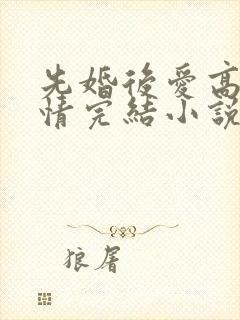 先婚後愛高
情完結小說
狼屠